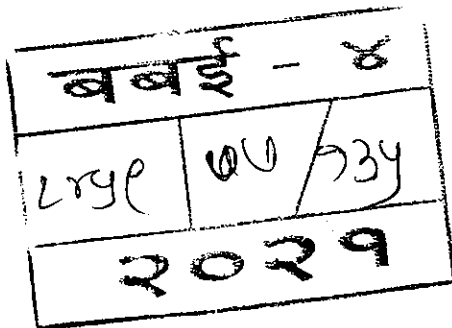 बबई - ४
८४५९ ७७ / १३५
२०२१